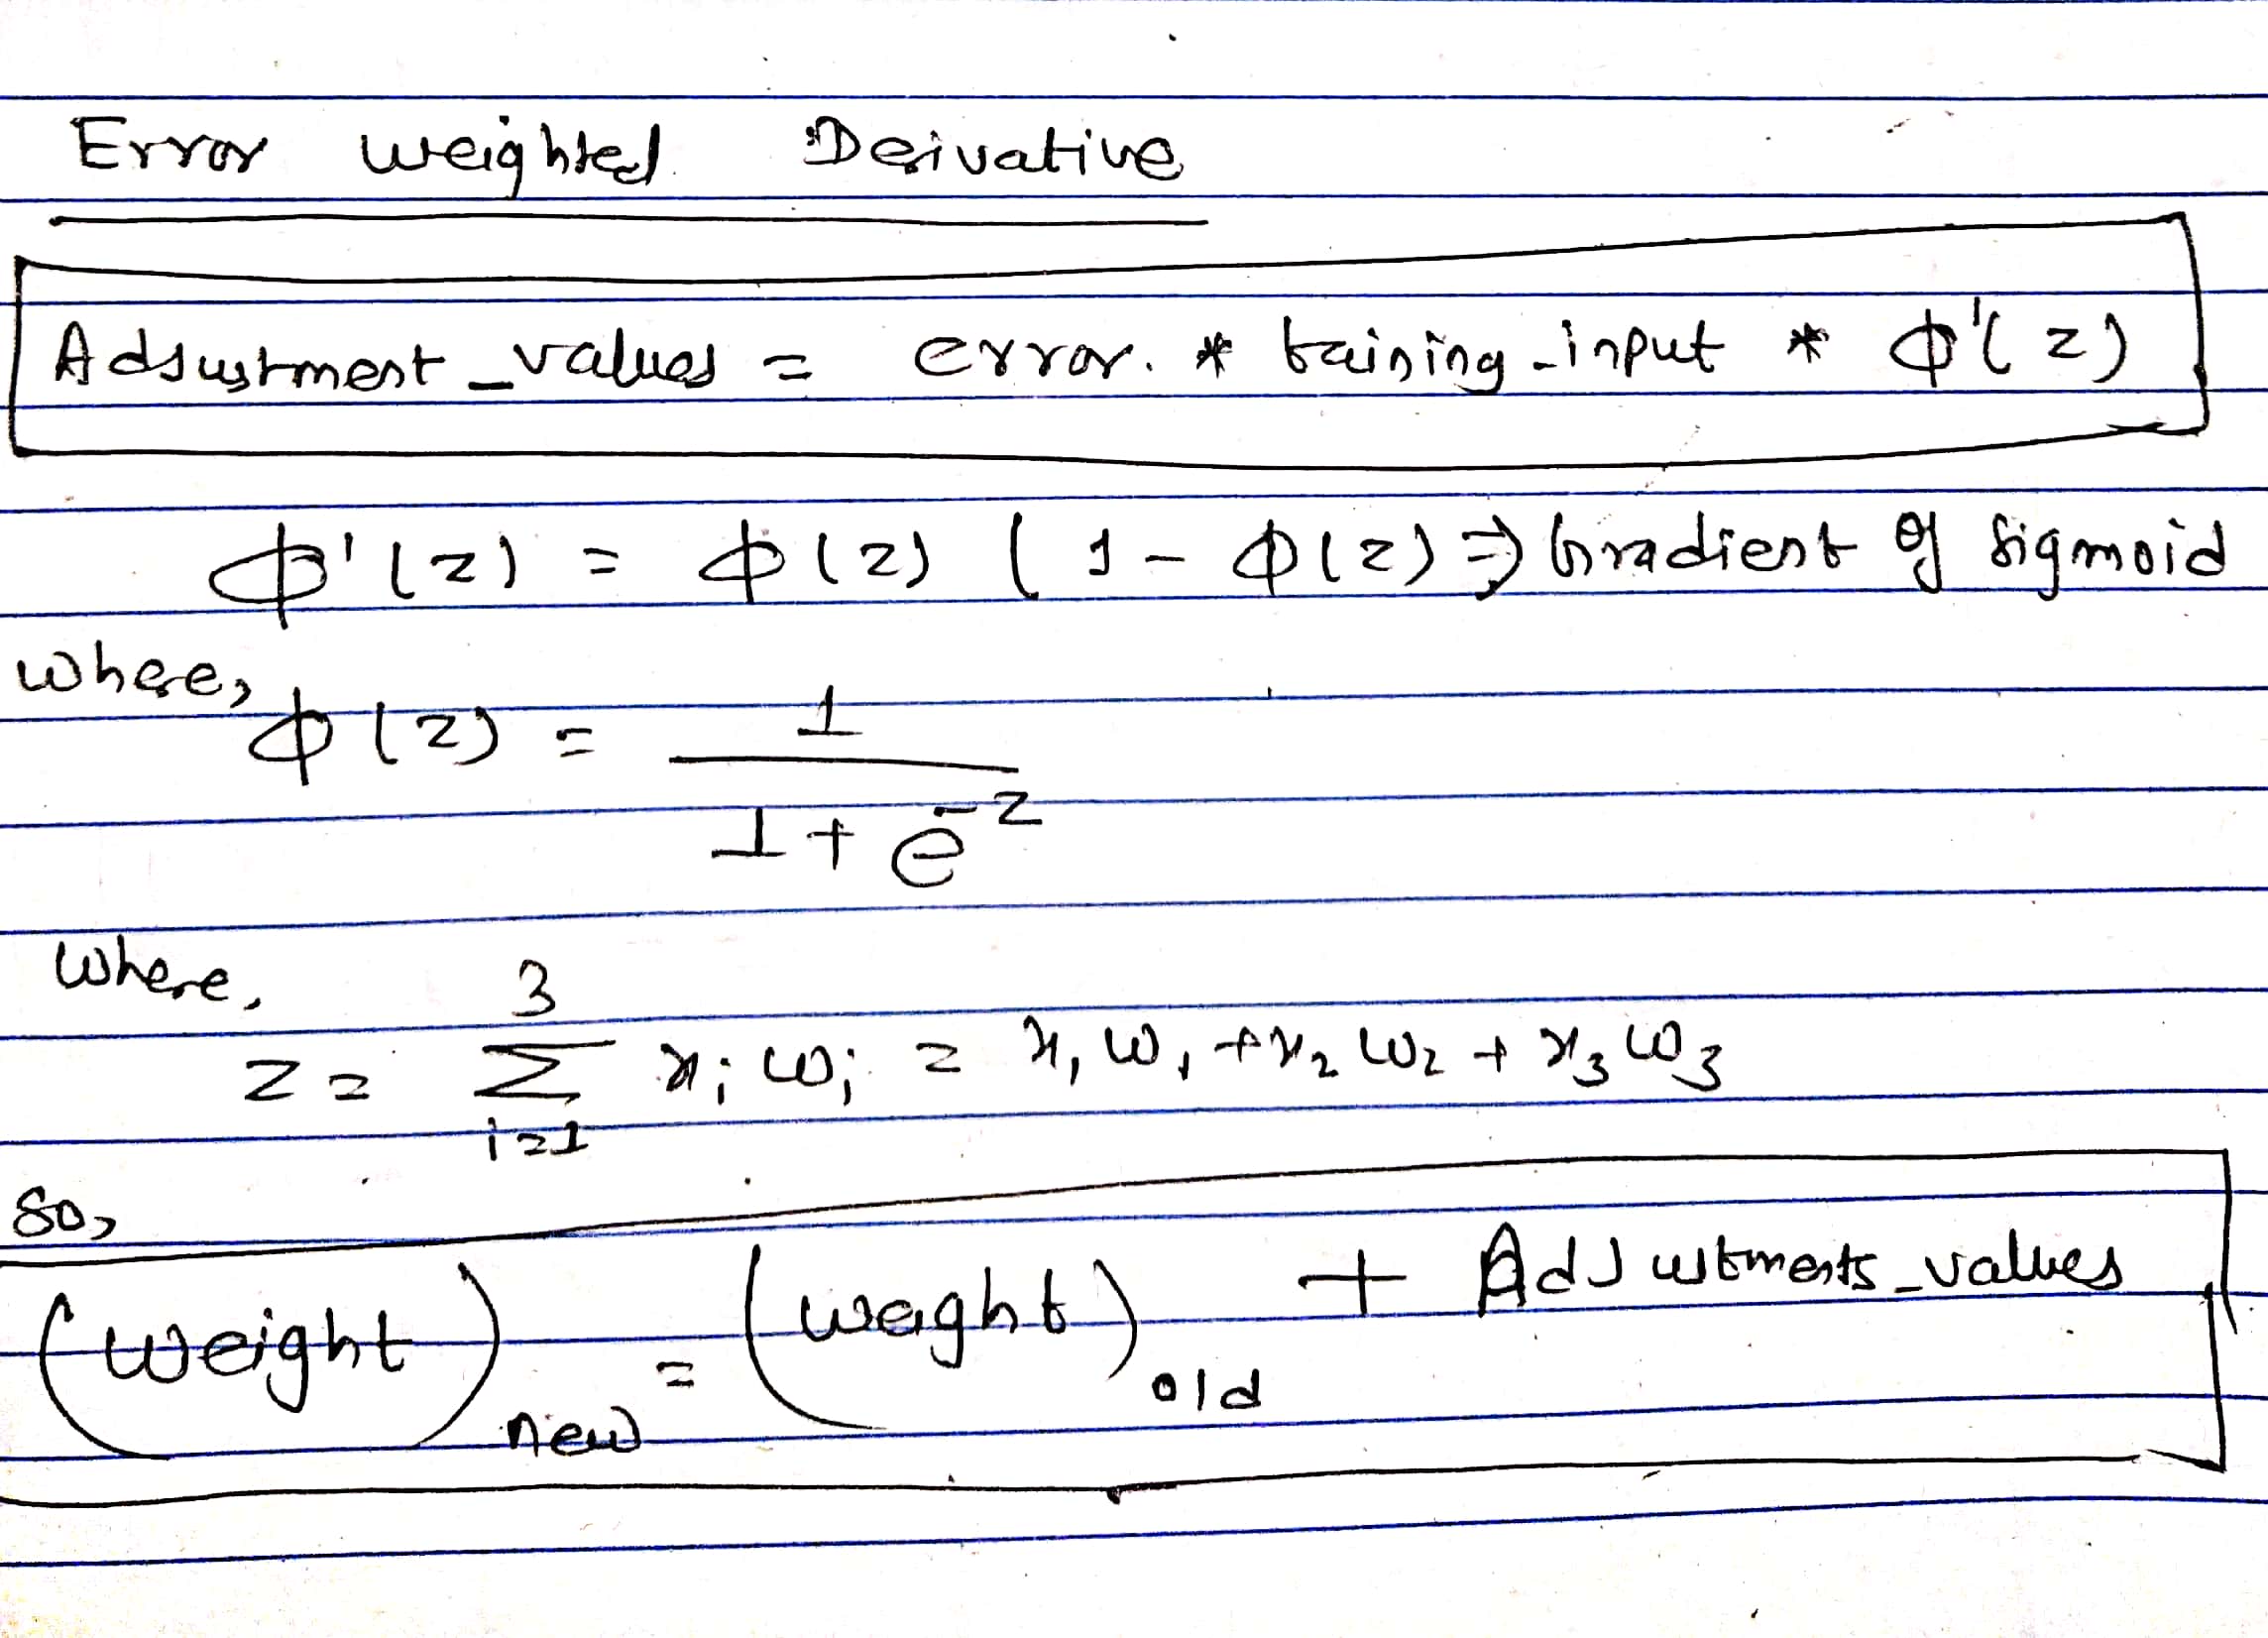 Error weighted Derivative
Adjustment_values = error. * taining_input * ϕ'(z)
ϕ'(z) = ϕ(z) (1 - ϕ(z) ⇒) Gradient of Sigmoid
where,
ϕ(z) = 1
1 + e^-z
where,
3
z = Σ xi wi = x1 w1 + x2 w2 + x3 w3
i=1
So,
(weight)new = (weight)old + Adjustments_values